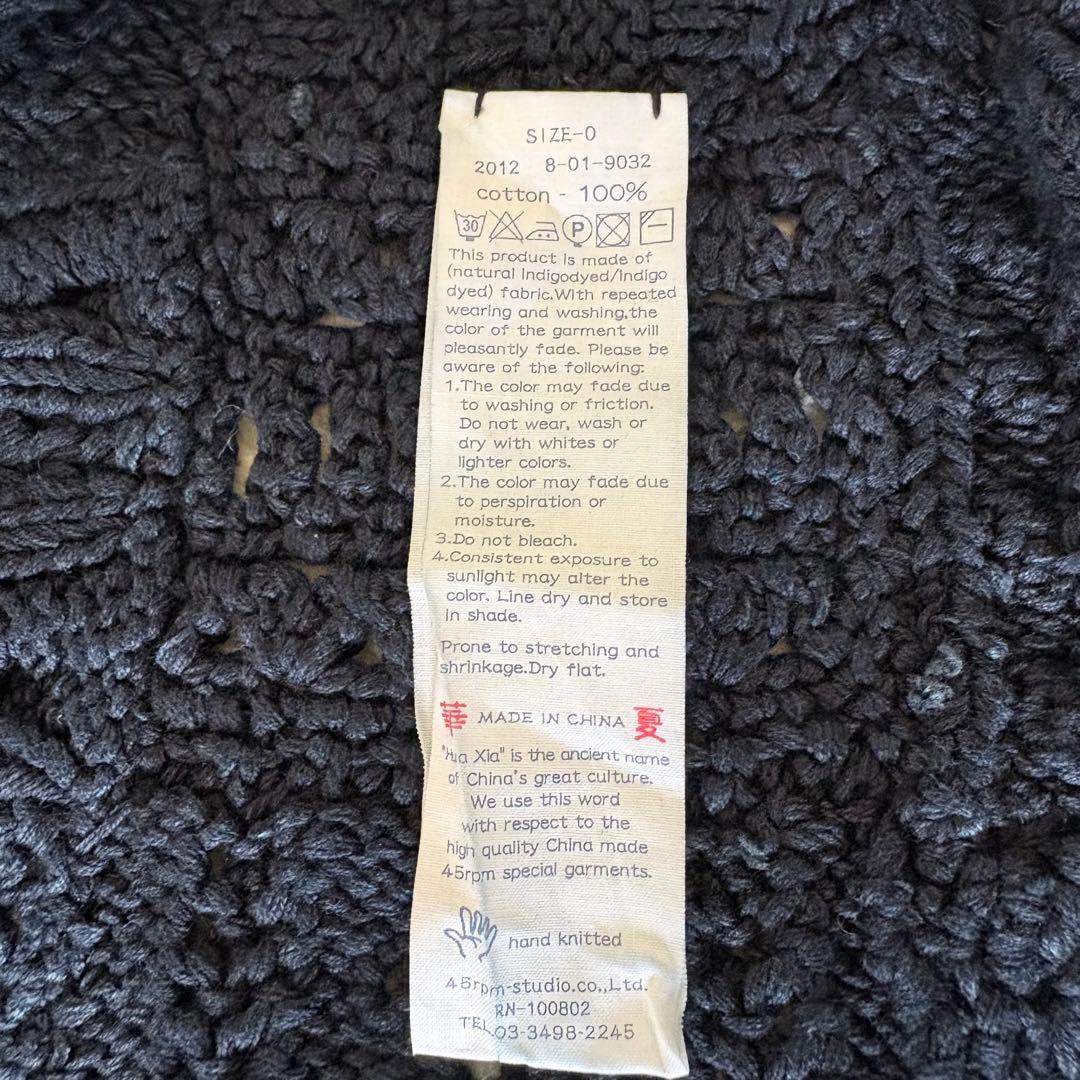 SIZE-0
2012 8-01-9032
cotton - 100%
30 P
This product is made of
(natural Indigodyed/Indigo
dyed) fabric.With repeated
wearing and washing,the
color of the garment will
pleasantly fade. Please be
aware of the following:
1.The color may fade due
to washing or friction.
Do not wear, wash or
dry with whites or
lighter colors.
2.The color may fade due
to perspiration or
moisture.
3.Do not bleach.
4.Consistent exposure to
sunlight may alter the
color. Line dry and store
in shade.
Prone to stretching and
shrinkage.Dry flat.
華 MADE IN CHINA 夏
"Hua Xia" is the ancient name
of China's great culture.
We use this word
with respect to the
high quality China made
45rpm special garments.
hand knitted
45rpm-studio.co.,Ltd.
RN-100802
TEL.03-3498-2245